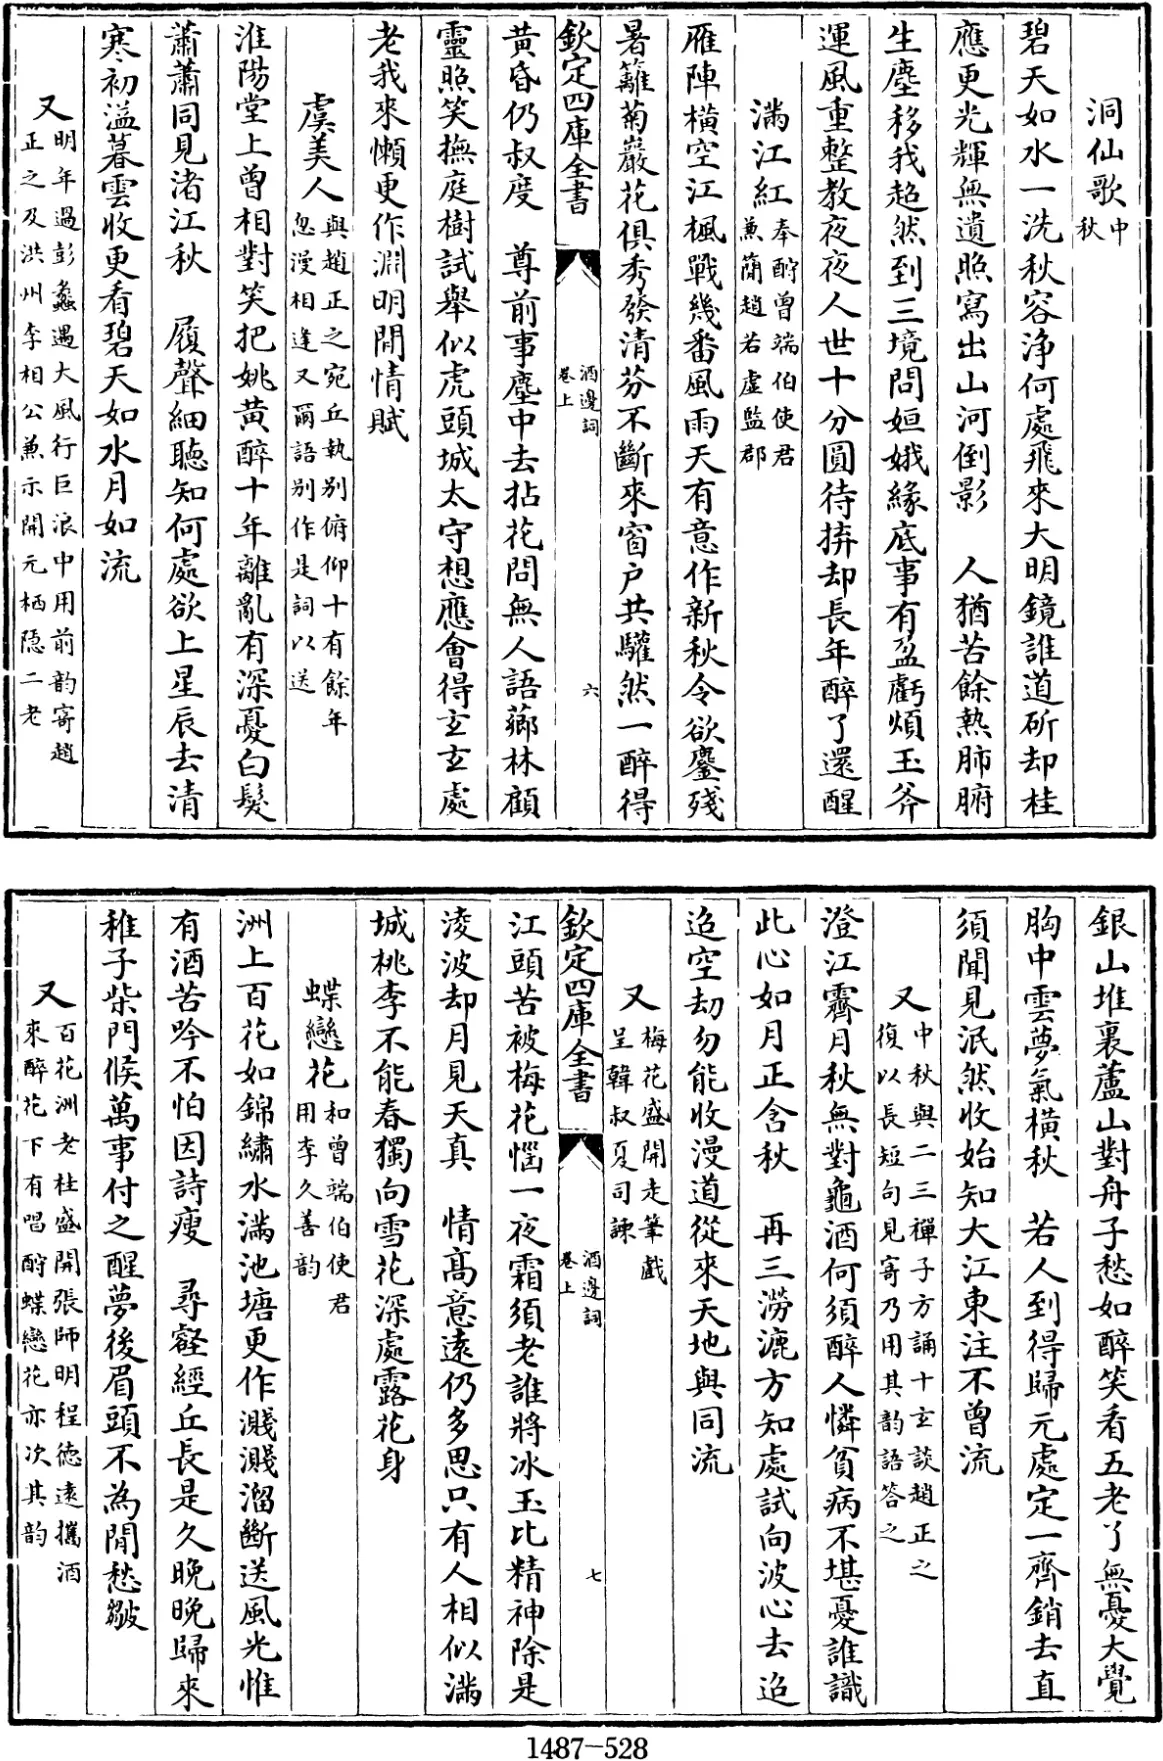 洞仙歌中秋
碧天如水一洗秋容浄何處飛來大明鏡誰道斫却桂
應更光輝無遺照寫出山河倒影　人猶苦餘熱肺腑
生塵移我超然到三境問姮娥緣底事有盈虧煩玉斧
運風重整教夜夜人世十分圓待拚却長年醉了還醒
滿江紅奉酧曾端伯使君兼簡趙若虚監郡
雁陣横空江楓戰幾番風雨天有意作新秋令欲鏖殘
暑籬菊巖花俱秀發清芬不斷來窗户共驩然一醉得
欽定四庫全書　酒邊詞卷上　六
黄昏仍叔度　尊前事塵中去拈花問無人語薌林顧
靈照笑撫庭樹試舉似虎頭城太守想應會得玄玄處
老我來懶更作淵明閒情賦
虞美人與趙正之宛丘執别俯仰十有餘年忽漫相逢又爾語别作是詞以送
淮陽堂上曾相對笑把姚黄醉十年離亂有深憂白髮
蕭蕭同見渚江秋　履聲細聽知何處欲上星辰去清
寒初溢暮雲收更看碧天如水月如流
又明年過彭蠡遇大風行巨浪中用前韵寄趙正之及洪州李相公兼示開元栖隠二老
銀山堆裏蘆山對舟子愁如醉笑看五老了無憂大覺
胸中雲夢氣横秋　若人到得歸元處定一齊銷去直
須聞見泯然收始知大江東注不曾流
又中秋與二三禪子方誦十玄談趙正之復以長短句見寄乃用其韵語答之
澄江霽月秋無對龜酒何須醉人憐貧病不堪憂誰識
此心如月正含秋　再三澇漉方知處試向波心去迨
迨空刼勿能收漫道從來天地與同流
又梅花盛開走筆戲呈韓叔夏司諫
欽定四庫全書　酒邊詞卷上　七
江頭苦被梅花惱一夜霜須老誰將冰玉比精神除是
淩波却月見天真　情高意遠仍多思只有人相似滿
城桃李不能春獨向雪花深處露花身
蝶戀花和曾端伯使君用李久善韵
洲上百花如錦繡水滿池塘更作濺濺溜斷送風光惟
有酒苦吟不怕因詩瘦　尋壑經丘長是久晚晚歸來
稚子柴門候萬事付之醒夢後眉頭不為閒愁皺
又百花洲老桂盛開張師明程德遠攜酒來醉花下有唱酧蝶戀花亦次其韵
1487—528